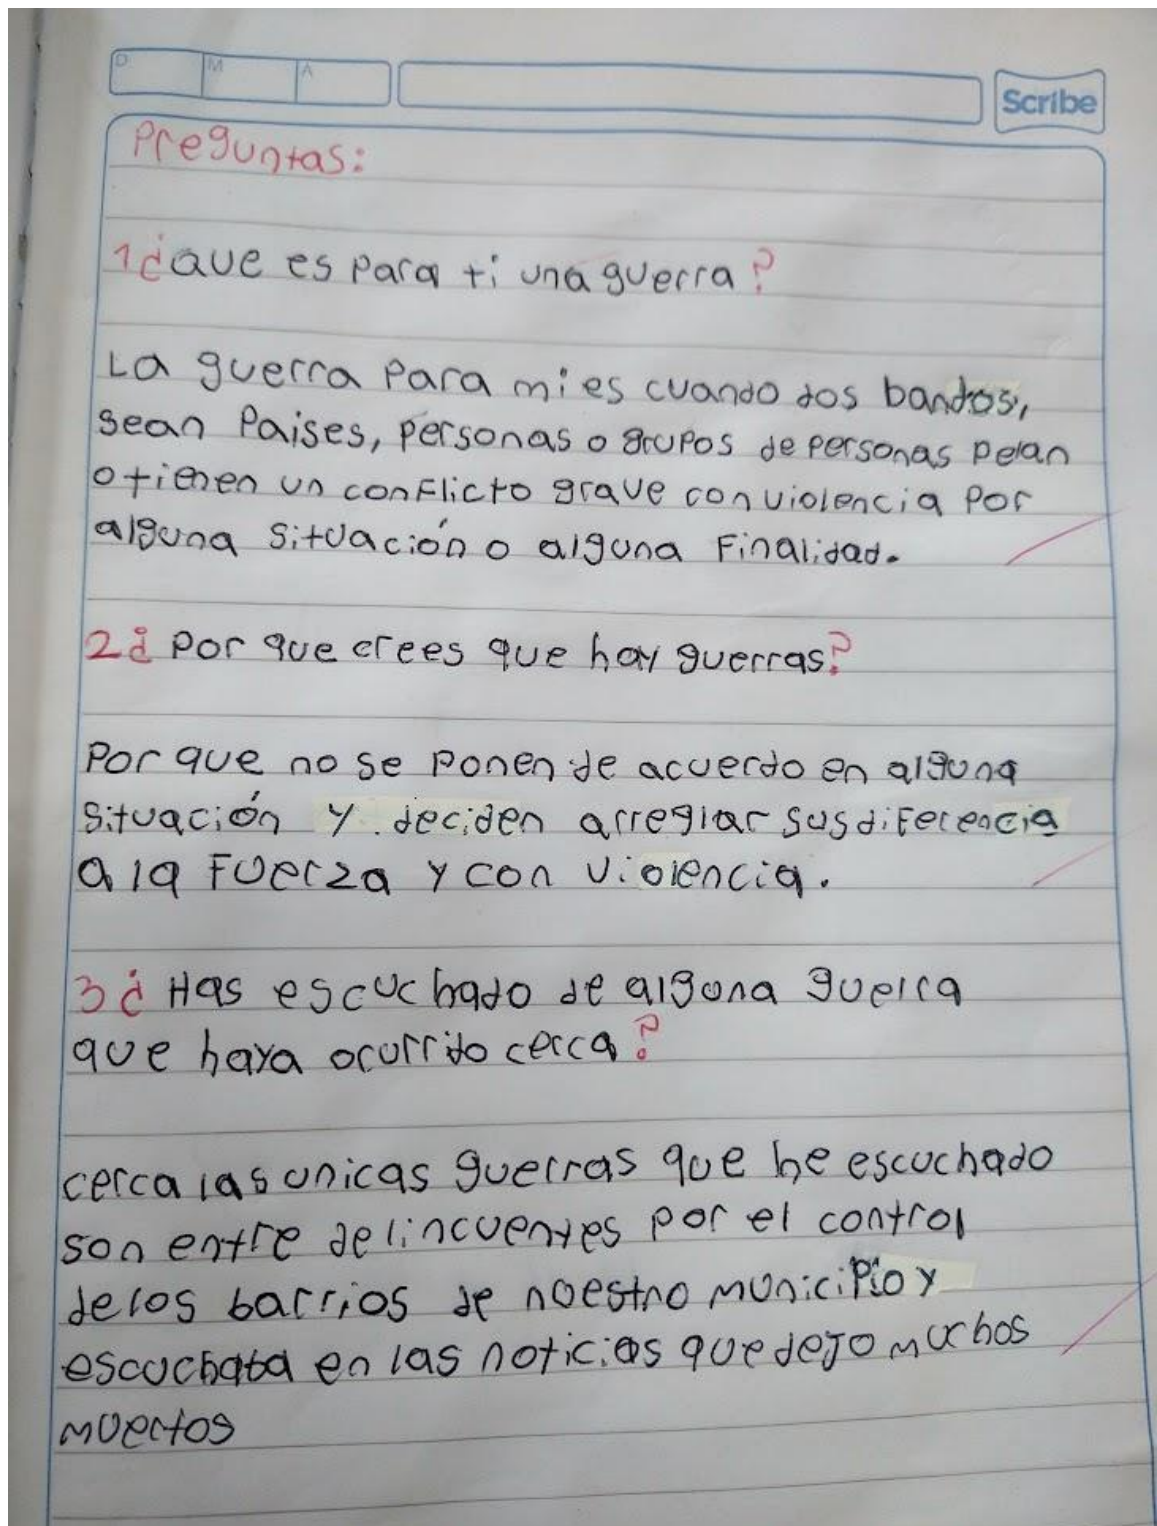 D M A
Scribe
Preguntas:
1¿Que es para ti una guerra?
La guerra para mi es cuando dos bandos,
sean Paises, personas o grupos de personas pelan
o tienen un conflicto grave con violencia por
alguna situación o alguna finalidad.
2¿ Por que crees que hay guerras?
Por que no se ponen de acuerdo en alguna
situación y deciden arreglar sus diferencia
a la fuerza y con violencia.
3¿ Has escuchado de alguna guerra
que haya ocurrido cerca?
cerca las unicas guerras que he escuchado
son entre delincuentes por el control
de los barrios de nuestro municipio y
escuchaba en las noticias que dejo muchos
muertos